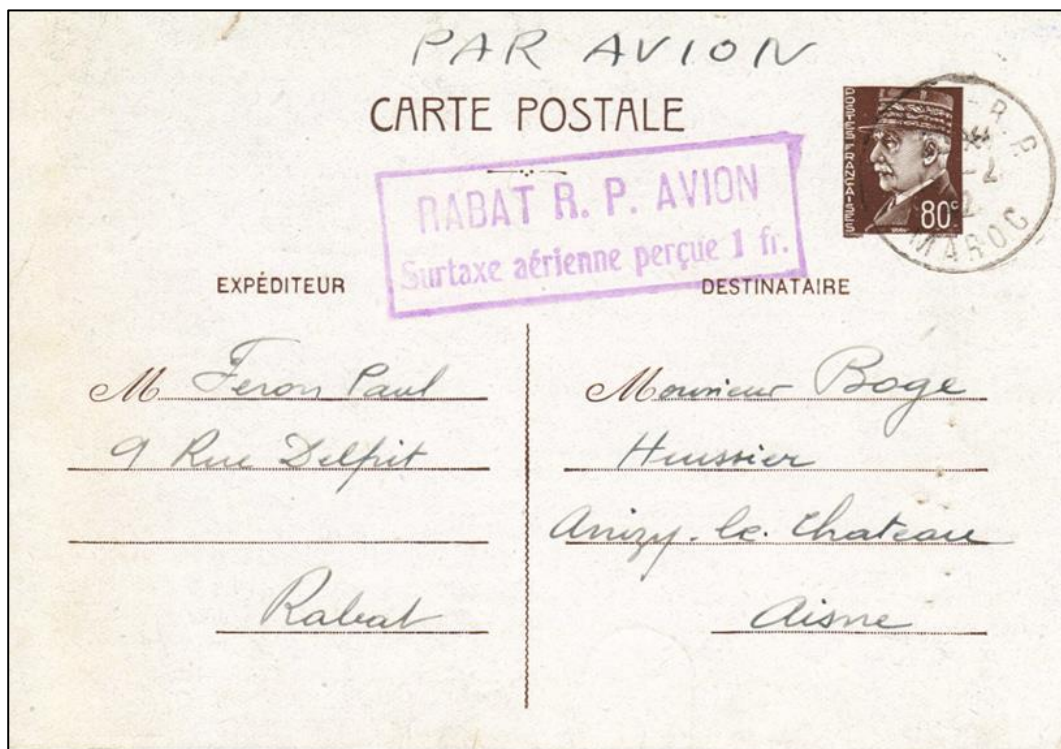 PAR AVION
CARTE POSTALE
POSTES FRANÇAISES
80c
R.P.
MAROC
RABAT R. P. AVION
Surtaxe aérienne perçue 1 fr.
EXPÉDITEUR
M Feron Paul
9 Rue Delpit
Rabat
DESTINATAIRE
Monsieur Boge
Huissier
Anizy-le-Chateau
Aisne